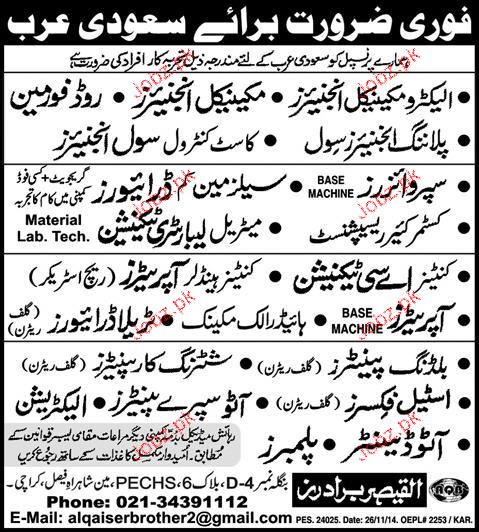 فوری ضرورت برائے سعودی عرب
ہمارے پرنسپل کو سعودی عرب کے لئے مندرجہ ذیل تجربہ کار افراد کی ضرورت ہے
• الیکٹرو مکینیکل انجنیئرز • مکینیکل انجنیئرز • روڈ فورمین
• پلاننگ انجنیئرز سول • کاسٹ کنٹرول سول انجنیئرز
• سپروائزرز BASE MACHINE • سیلزمین / ڈرائیورز گریجویٹ + کسی فوڈ کمپنی میں کام کا تجربہ
• کسٹمر کیئر ریسپشنسٹ • میٹریل لیبارٹری ٹیکنیشن Material Lab. Tech.
• کنٹینر اے سی ٹیکنیشن • کنٹینر ہینڈلر آپریٹرز (ریچ اسٹریکر)
• آپریٹرز BASE MACHINE • ہائیڈرالک مکینک • ٹریلا ڈرائیورز (گلف ریٹرن)
• بلڈنگ پینٹرز (گلف ریٹرن) • شٹرنگ کارپینٹرز (گلف ریٹرن)
• اسٹیل فکسرز (گلف ریٹرن) • آٹو سپرے پینٹرز • الیکٹریشن
• آٹو ڈینٹر • پلمبرز
رہائش میڈیکل بذمہ کمپنی دیگر مراعات مقامی لیبر قوانین کے
مطابق۔ امیدوار مکمل کاغذات کے ساتھ رجوع کریں
AQB القیصر برادرز
بنگلہ نمبر D-4، بلاک 6، PECHS، مین شاہراہ فیصل، کراچی۔
Phone: 021-34391112
E-Mail: alqaiserbrother2@gmail.com
PES. 24025. Date: 26/11/14 OEPL# 2253 / KAR.
Jobz.pk